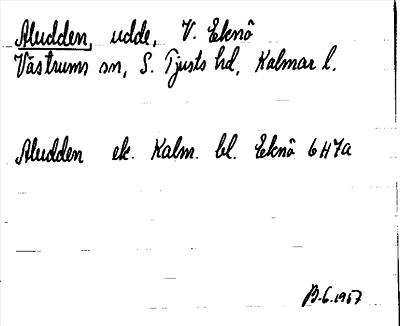 Aludden, udde, V. Eknö
Västrums sn, S. Tjusts hd, Kalmar l.
Aludden ek. Kalm. bl. Eknö 6H7a
B-6.1957